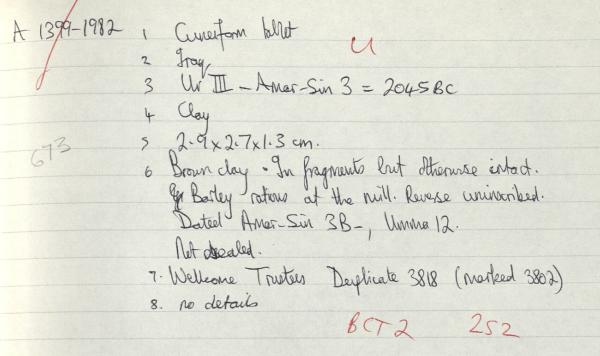 A 1399-1982 1 Cuneiform tablet U
2 Iraq
3 Ur III - Amar-Sin 3 = 2045 BC
4 Clay
673
5 2.9 x 2.7 x 1.3 cm.
6 Brown clay. In fragments but otherwise intact.
Barley rations at the mill. Reverse uninscribed.
Dated Amar-Sin 3B-, Umma 12.
Not sealed.
7. Wellcome Trustees Duplicate 3818 (marked 3802)
8. no details
BCT 2 252